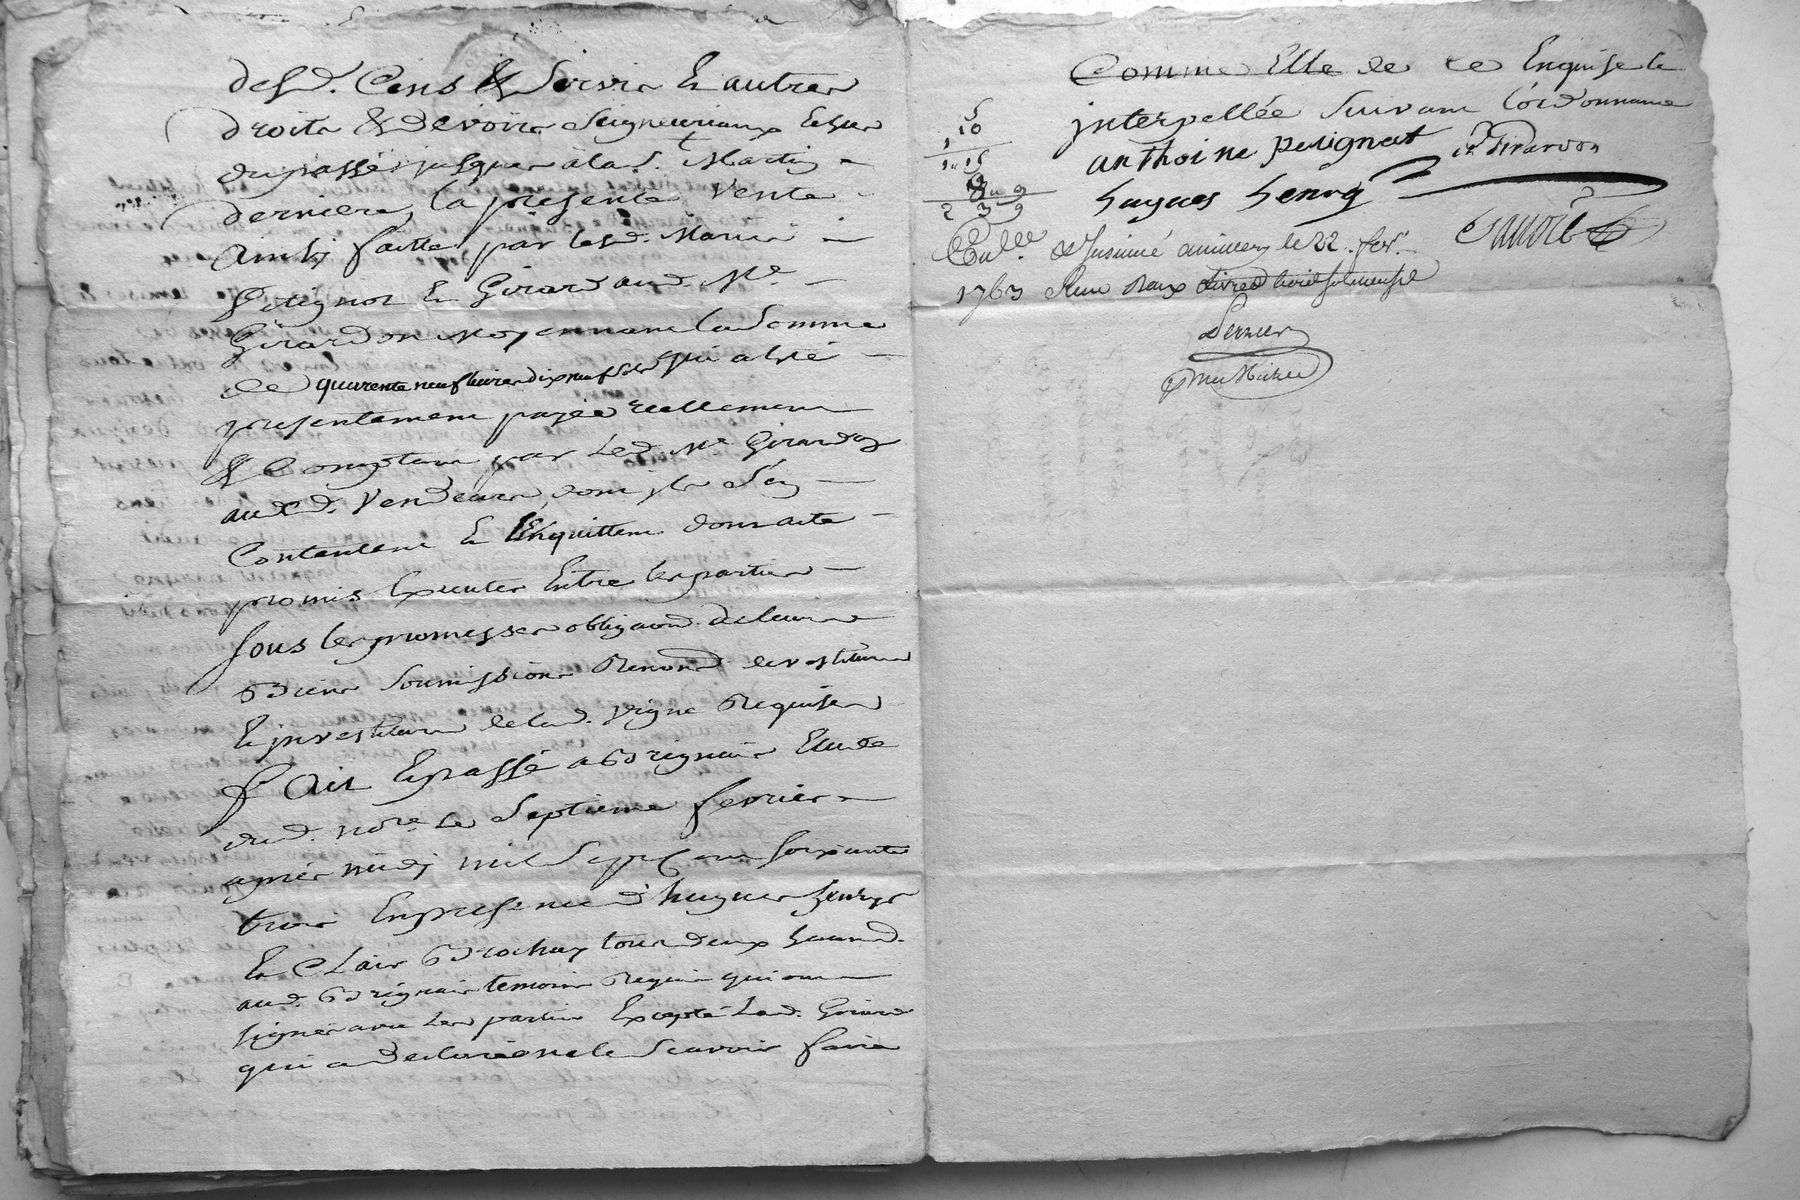 desd. Cens & Servis & autres
droits & devoirs Seigneuriaux Echus
du passé jusques a la St. Martin
derniere, la presente Vente
ainsy faitte par lesd. Mariés
Petignot & Girard aud. Me.
Girardon moyennant la somme
de quarente neuf livres dix neuf sols qui a été
presentement payée reellement
& Comptant par led. Me Girardon
auxd. Vendeurs, dont ils s'en
Contentent & l'Enquittent dont acte
promis Executer Entre les parties
sous les promesses obligaons. de leurs
Biens soumissions Renond. devestiture
& investiture de lad. Vigne Requises
Fait & passé a Brignais Etude
dud. nore. le septieme fevrier
aprés midy mil sept cent soixante
trois En presence d'hugues henrys
& Clair Brochay tous deux habitd.
aud. Brignais temoins Requis qui ont
signés avec les parties Excepté lad. Girard
qui a declarée ne le scavoir faire
Comme Elle de ce Enquise &
interpellée suivant l'ordonnance
5
10
1
1" 15
8" 9
2 3 9
anthoine petignot Girardon
hugues henry
Collé & Insinué a anicey le 22. fevr.
1763 Reçu deux livres trois sols neuf d.